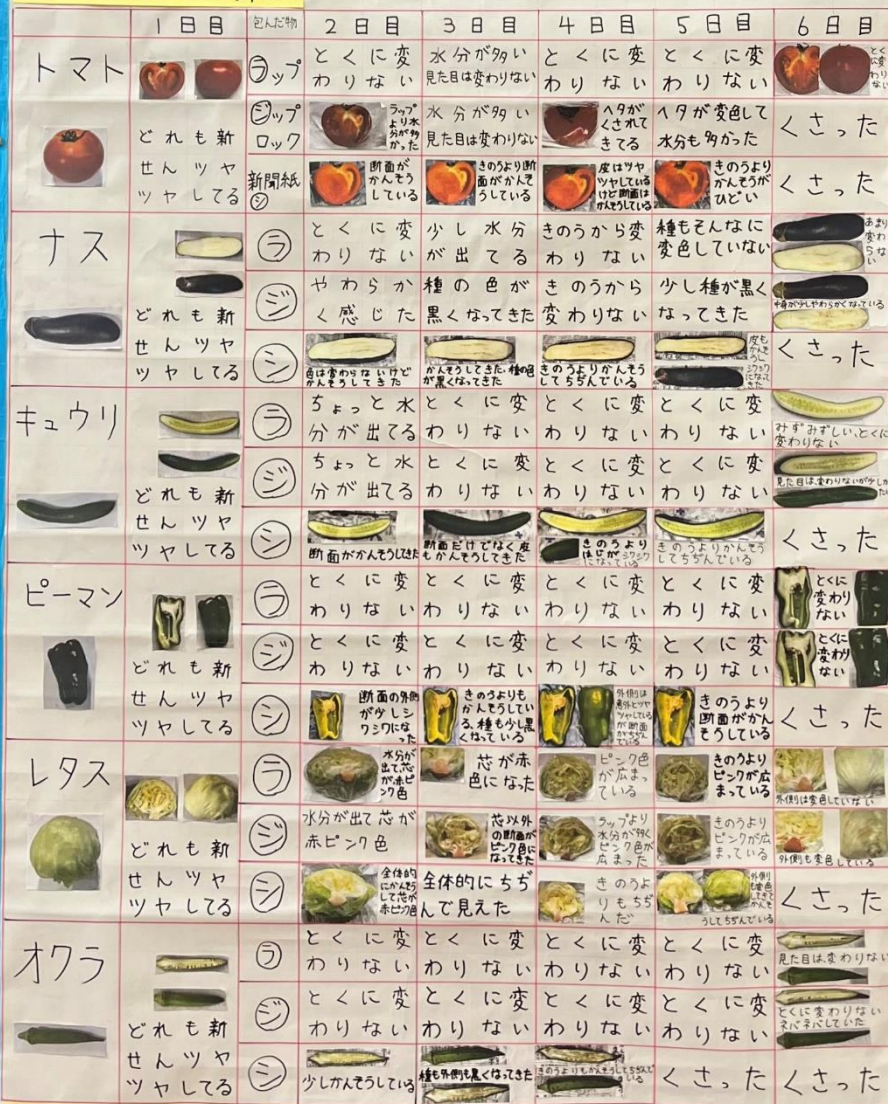 1日目 包んだ物 2日目 3日目 4日目 5日目 6日目
トマト
どれも新
せんツヤ
ツヤしてる
ラップ
とくに変
わりない
水分が多い
見た目は変わりない
とくに変
わりない
とくに変
わりない
とく
に変
わり
ない
ジップ
ロック
ラップ
より水
分が多
かった
水分が多い
見た目は変わりない
ヘタが
くされて
きてる
ヘタが変色して
水分も多かった
くさった
新聞紙
シ
断面が
かんそう
している
きのうより断
面がかんそ
うしている
皮はツヤ
ツヤしている
けど断面は
かんそうしている
きのうより
かんそうが
ひどい
くさった
ナス
どれも新
せんツヤ
ツヤしてる
ラ
とくに変
わりない
少し水分
が出てる
きのうから変
わりない
種もそんなに
変色していない
あまり
変わ
らな
い
ジ
やわらか
く感じた
種の色が
黒くなってきた
きのうから
変わりない
少し種が黒く
なってきた
中身が少しやわらかくなっている
シ
色は変わらないけど
かんそうしてきた
かんそうしてきた、種の色
が黒くなってきた
きのうよりかんそう
してちぢんでいる
皮も
かんそ
うし
シワシワ
になって
きた
くさった
キュウリ
どれも新
せんツヤ
ツヤしてる
ラ
ちょっと水
分が出てる
とくに変
わりない
とくに変
わりない
とくに変
わりない
みずみずしい、とくに
変わりない
ジ
ちょっと水
分が出てる
とくに変
わりない
とくに変
わりない
とくに変
わりない
見た目は変わりないが少し
シ
断面がかんそうしてきた
断面だけでなく皮
もかんそうしてきた
きのうより
はじが シワシワ
になっている
きのうよりかんそう
してちぢんでいる
くさった
ピーマン
どれも新
せんツヤ
ツヤしてる
ラ
とくに変
わりない
とくに変
わりない
とくに変
わりない
とくに変
わりない
とくに
変わり
ない
ジ
とくに変
わりない
とくに変
わりない
とくに変
わりない
とくに変
わりない
とくに
変わり
ない
シ
断面の外側
が少しシ
ワシワにな
った
きのうよりも
かんそうしてい
る、種も少し黒
くなっている
外側は
意外とツヤ
ツヤしている
が断面
がちぢん
でいる
きのうより
断面がかん
そうしている
くさった
レタス
どれも新
せんツヤ
ツヤしてる
ラ
水分が
出て、芯
が、赤ピ
ンク色
芯が赤
色になった
ピンク色
が広まっ
ている
きのうより
ピンクが広
まっている
外側は変色していない
ジ
水分が出て芯が
赤ピンク色
芯以外
の断面が
ピンク色に
なってきた
ラップより
水分が多く
ピンク色が
広まった
きのうより
ピンクが広
まっている
外側も変色している
シ
全体的
にかんそう
して芯が
赤ピンク色
全体的にちぢ
んで見えた
きのうよ
りもちぢ
んだ
外側
も変色
してきて
かんそ
うしてちぢんでいる
くさった
オクラ
どれも新
せんツヤ
ツヤしてる
ラ
とくに変
わりない
とくに変
わりない
とくに変
わりない
とくに変
わりない
見た目は、変わりない
ジ
とくに変
わりない
とくに変
わりない
とくに変
わりない
とくに変
わりない
とくに変わりない
ネバネバしていた
シ
少しかんそうしている
種も外側も黒くなってきた
きのうよりもかんそうしてちぢんで
いる
くさった
くさった